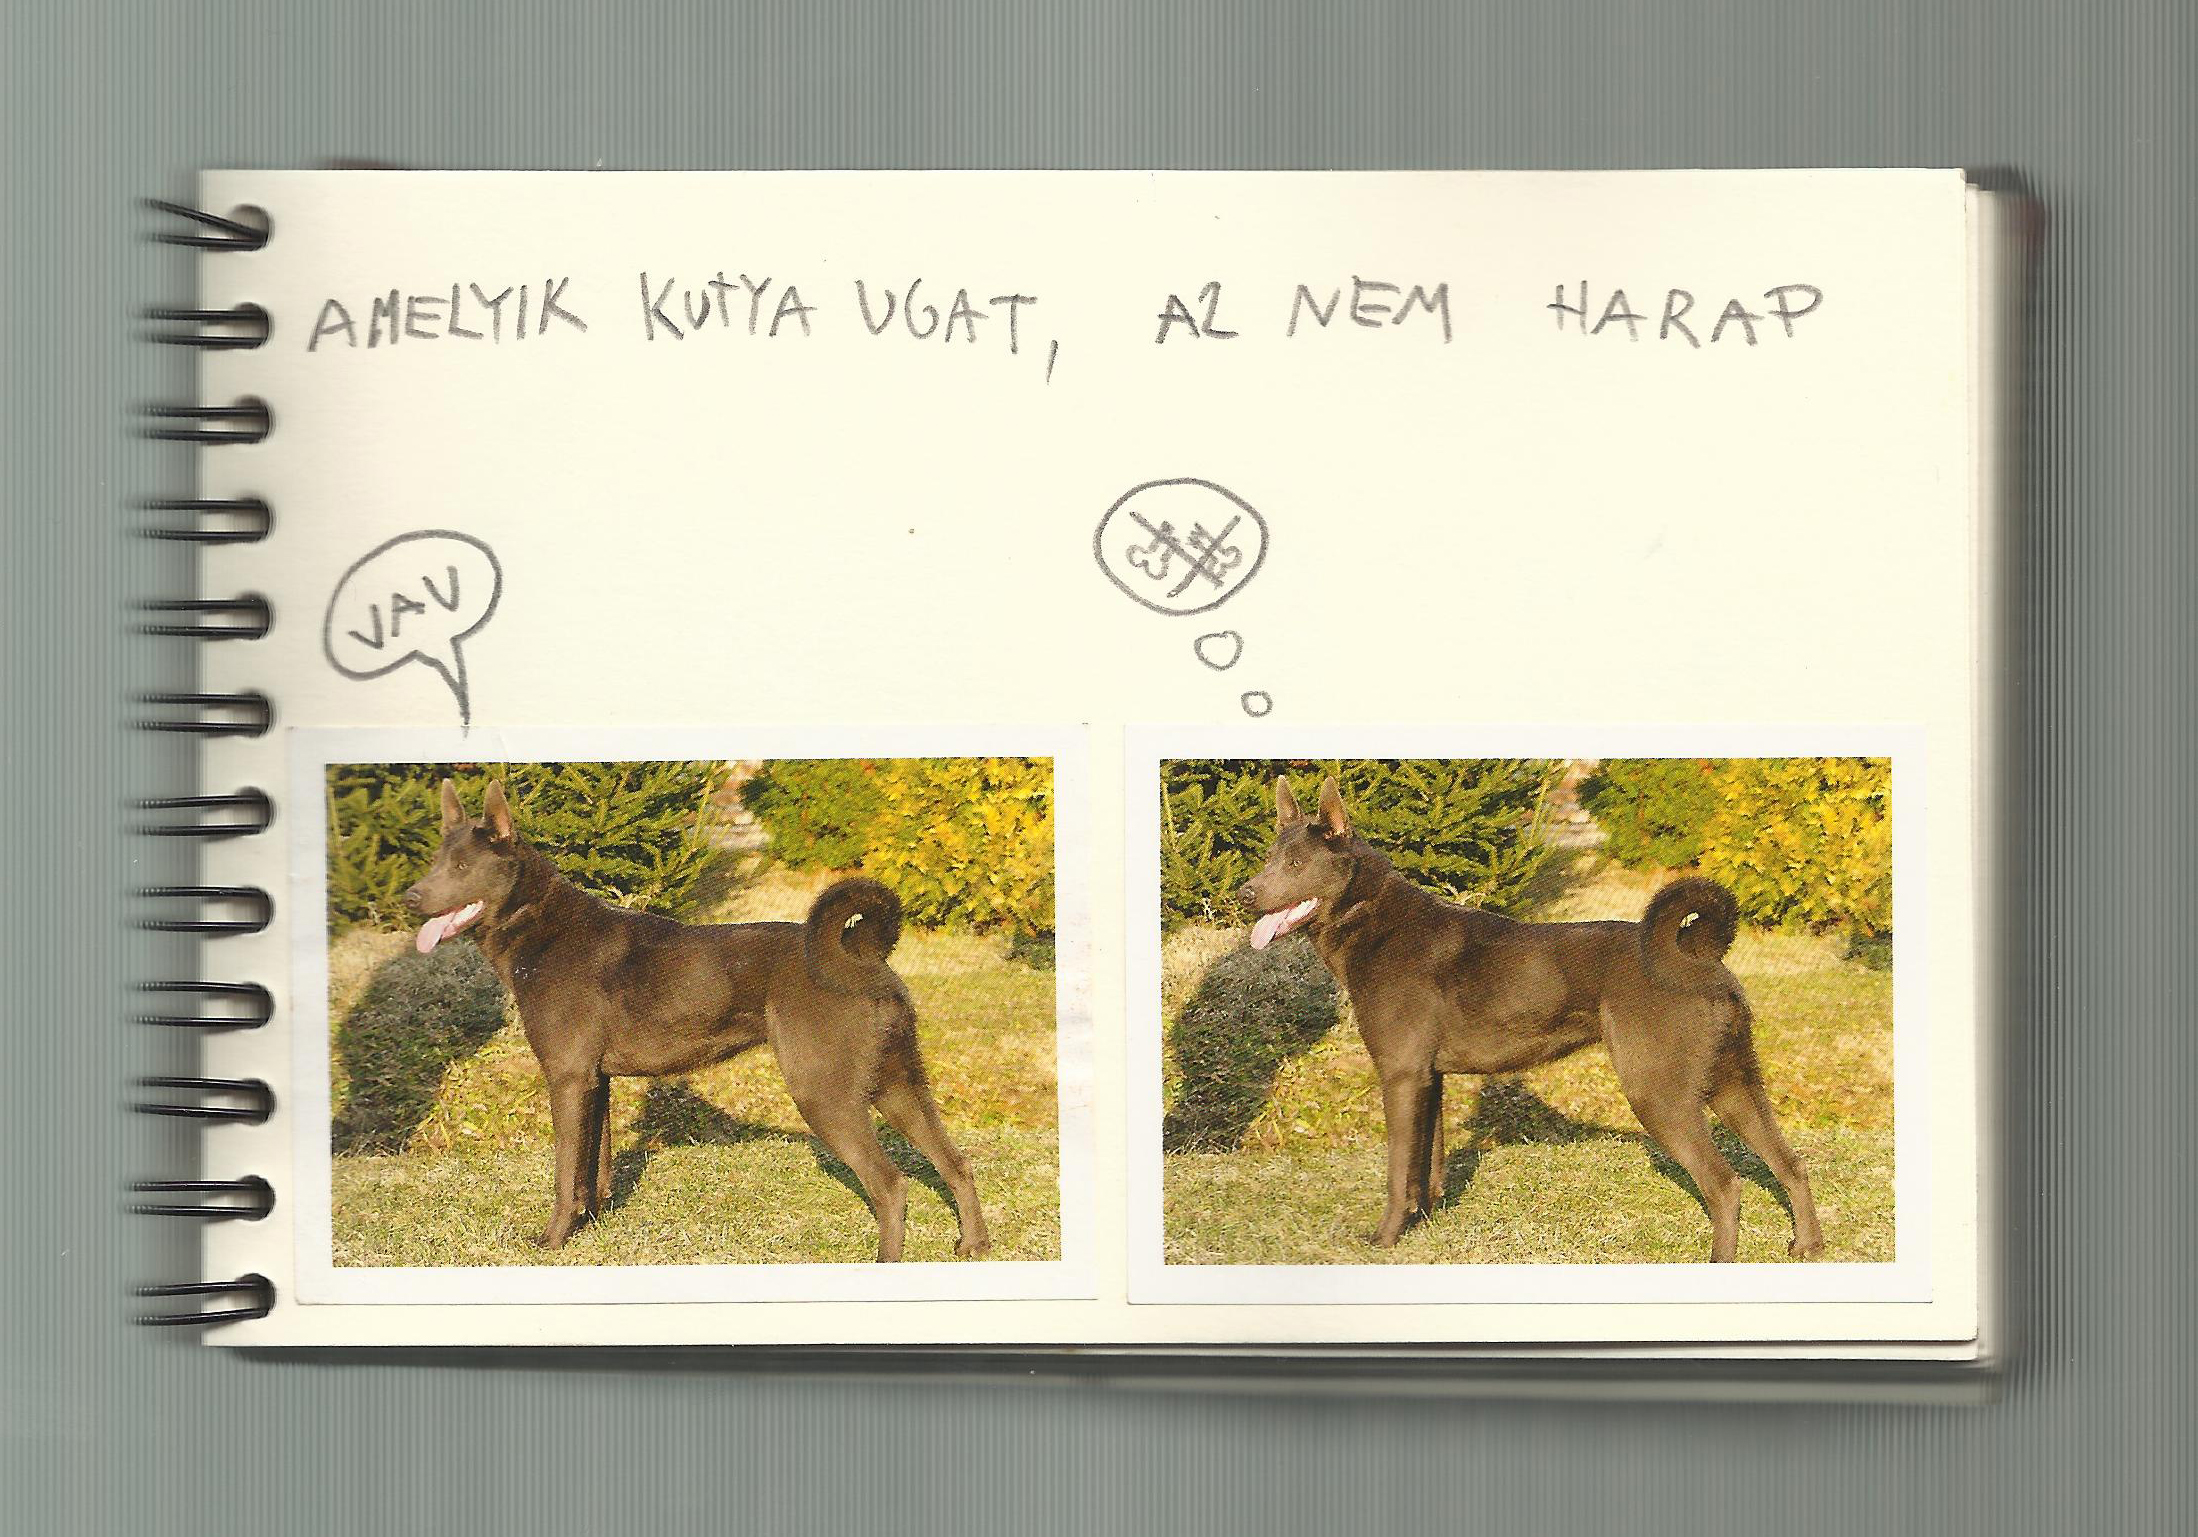 AMELYIK KUTYA UGAT, AZ NEM HARAP
VAU